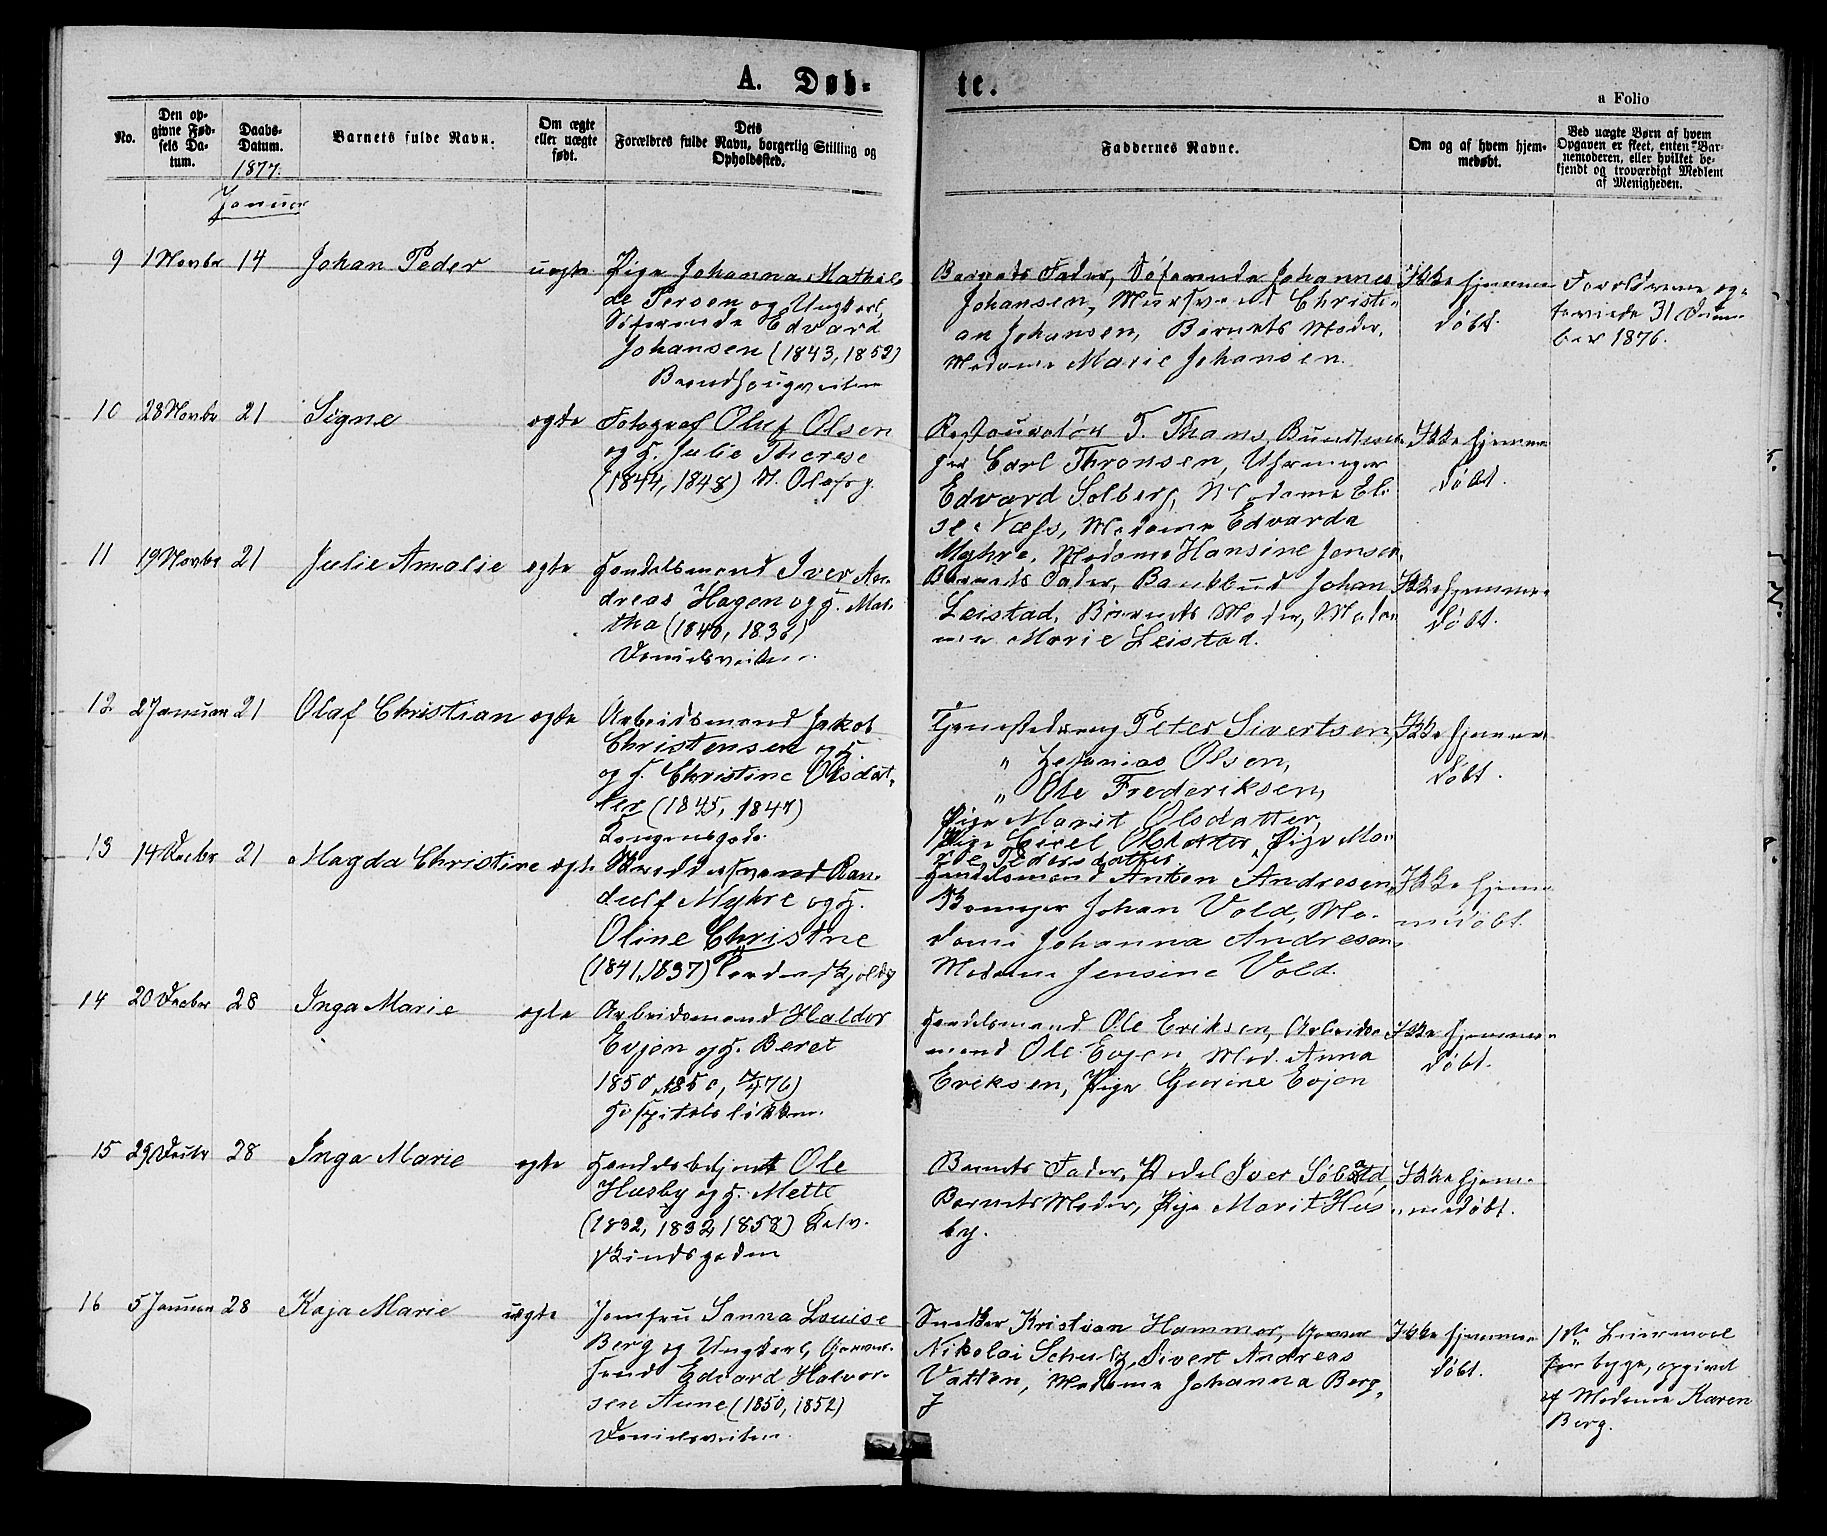 A. Døb-
te.
a Folio
No.
Den op-
givne Fød-
sels Da-
tum.
Daabs-
Datum.
1877.
Barnets fulde Navn.
Om ægte
eller uægte
født.
Dets
Forældres fulde Navn, borgerlig Stilling og
Opholdssted.
Faddernes Navne.
Om og af hvem hjem-
medøbt.
Ved uægte Børn af hvem
Opgaven er skeet, enten Bar-
nemoderen, eller hvilket be-
kjendt og troværdigt Medlem
af Menigheden.
Januar
9 1 Novbr 14 Johan Peder uægte Pige Johanna Mathil-
de Persen og Ungkarl,
Søfarende Edvard
Johansen (1843, 1852)
Brandhougveiten
Barnets Fader, Søfarende Johannes
Johansen, Mursvend Christi-
an Johansen, Barnets Moder,
Madame Marie Johansen.
Ikke hjemme-
døbt.
Forældrene æg-
teviede 31 Decem-
ber 1876.
10 28 Novbr 21 Signe ægte Fotograf Oluf Olsen
og H. Julie Therese
(1844, 1848) St. Olafsg.
Restauratør T. Thams, Bundtma-
ger Carl Thronsen, Uhrmager
Edvard Solberg, Madame El-
se Næss, Madame Edvarda
Myhre, Madame Hansine Jensen
Ikke hjemme-
døbt.
11 19 Novbr 21 Julie Amalie ægte Handelsmand Iver An-
dreas Hagen og H. Mar-
tha (1840, 1836)
Danielsveiten.
Barnets Fader, Bankbud Johan
Leistad, Barnets Moder, Mada-
me Marie Leistad.
Ikke hjemme-
døbt.
12 2 Januar 21 Olaf Christian ægte Arbeidsmand Jakob
Christensen og H
og H. Christine Olsdat-
ter (1845, 1847)
Tjenestedreng Peter Sivertsen,
" Zefanias Olsen,
" Ole Frederiksen,
Pige Marit Olsdatter,
Pige Sirel Olsdatter, Pige Ma-
rie Pedersdatter.
Ikke hjemme-
døbt.
13 14 Decbr 21 Magda Christine ægte Skræddersvend Ran-
dulf Myhre og H.
Oline Christine
(1841, 1837) Tordenskjoldsg
Handelsmand Anton Andresen,
Skomager Johan Vold, Ma-
dame Johanna Andresen,
Madame Jensine Vold.
Ikke hjem-
medøbt.
14 20 Decbr 28 Inga Marie ægte Arbeidsmand Haldor
Evjen og H. Beret
1850, 1850,
Hospitalsløkken.
Handelsmand Ole Eriksen, Arbeids-
mand Ole Evjen, Mad. Anna
Eriksen, Pige Gurine Evjen
Ikke hjemme-
døbt.
15 29 Decbr 28 Inga Marie ægte Handelsbetjent Ole
Husby og H. Mette
(1832, 1832, 1858) Kalv-
skindsgaden
Barnets Fader, Pedel Iver Søbstad,
Barnets Moder, Pige Marit Hus-
by.
Ikke hjem-
medøbt.
16 5 Januar 28 Kaja Marie uægte Jomfru Sanna Louise
Berg og Ungkarl, Garver-
svend Edvard Halvor-
sen Aune (1850, 1852)
Danielsveiten.
Snedker Kristian Hammer, Garver
Nikolai Schulz, Sivert Andreas
Vatten, Madame Johanna Berg,
Ikke hjemme-
døbt.
1ste Leiermaal
for begge, opgivet
af Madame Karen
Berg.